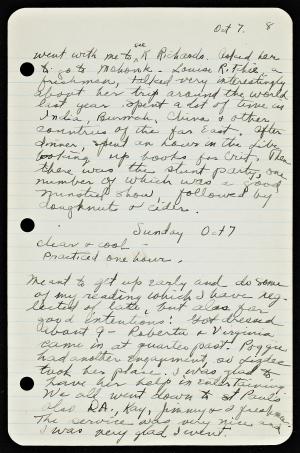 Oct 7. 8
the
went with me to K Richards. Asked her
to go to Mohonk - Louise R. Thie, a
freshman, talked very interestingly
about her trip around the world
last year. Spent a lot of time in
India, Burmah, China & other
countries of the far East. After
dinner, spent an hour in the libe
looking up books for Crit. Then
there was the stunt party, one
number of which was a good
minstrel show, followed by
doughnuts & cider.
Sunday Oct 7
clear & cool -
Practiced one hour.
Meant to get up early and do some
of my reading which I have neg-
lected of late, but alas, for
good intentions! Got dressed
about 9 - Roberta & Virginia
came in at quarter past. Peggie
had another Engagement, so
took her place. I was glad to
have her help in entertaining
We all went down to St Paul's
also R.A., Kay, Jimmy & a freshman.
The service was very nice and
I was very glad I went.